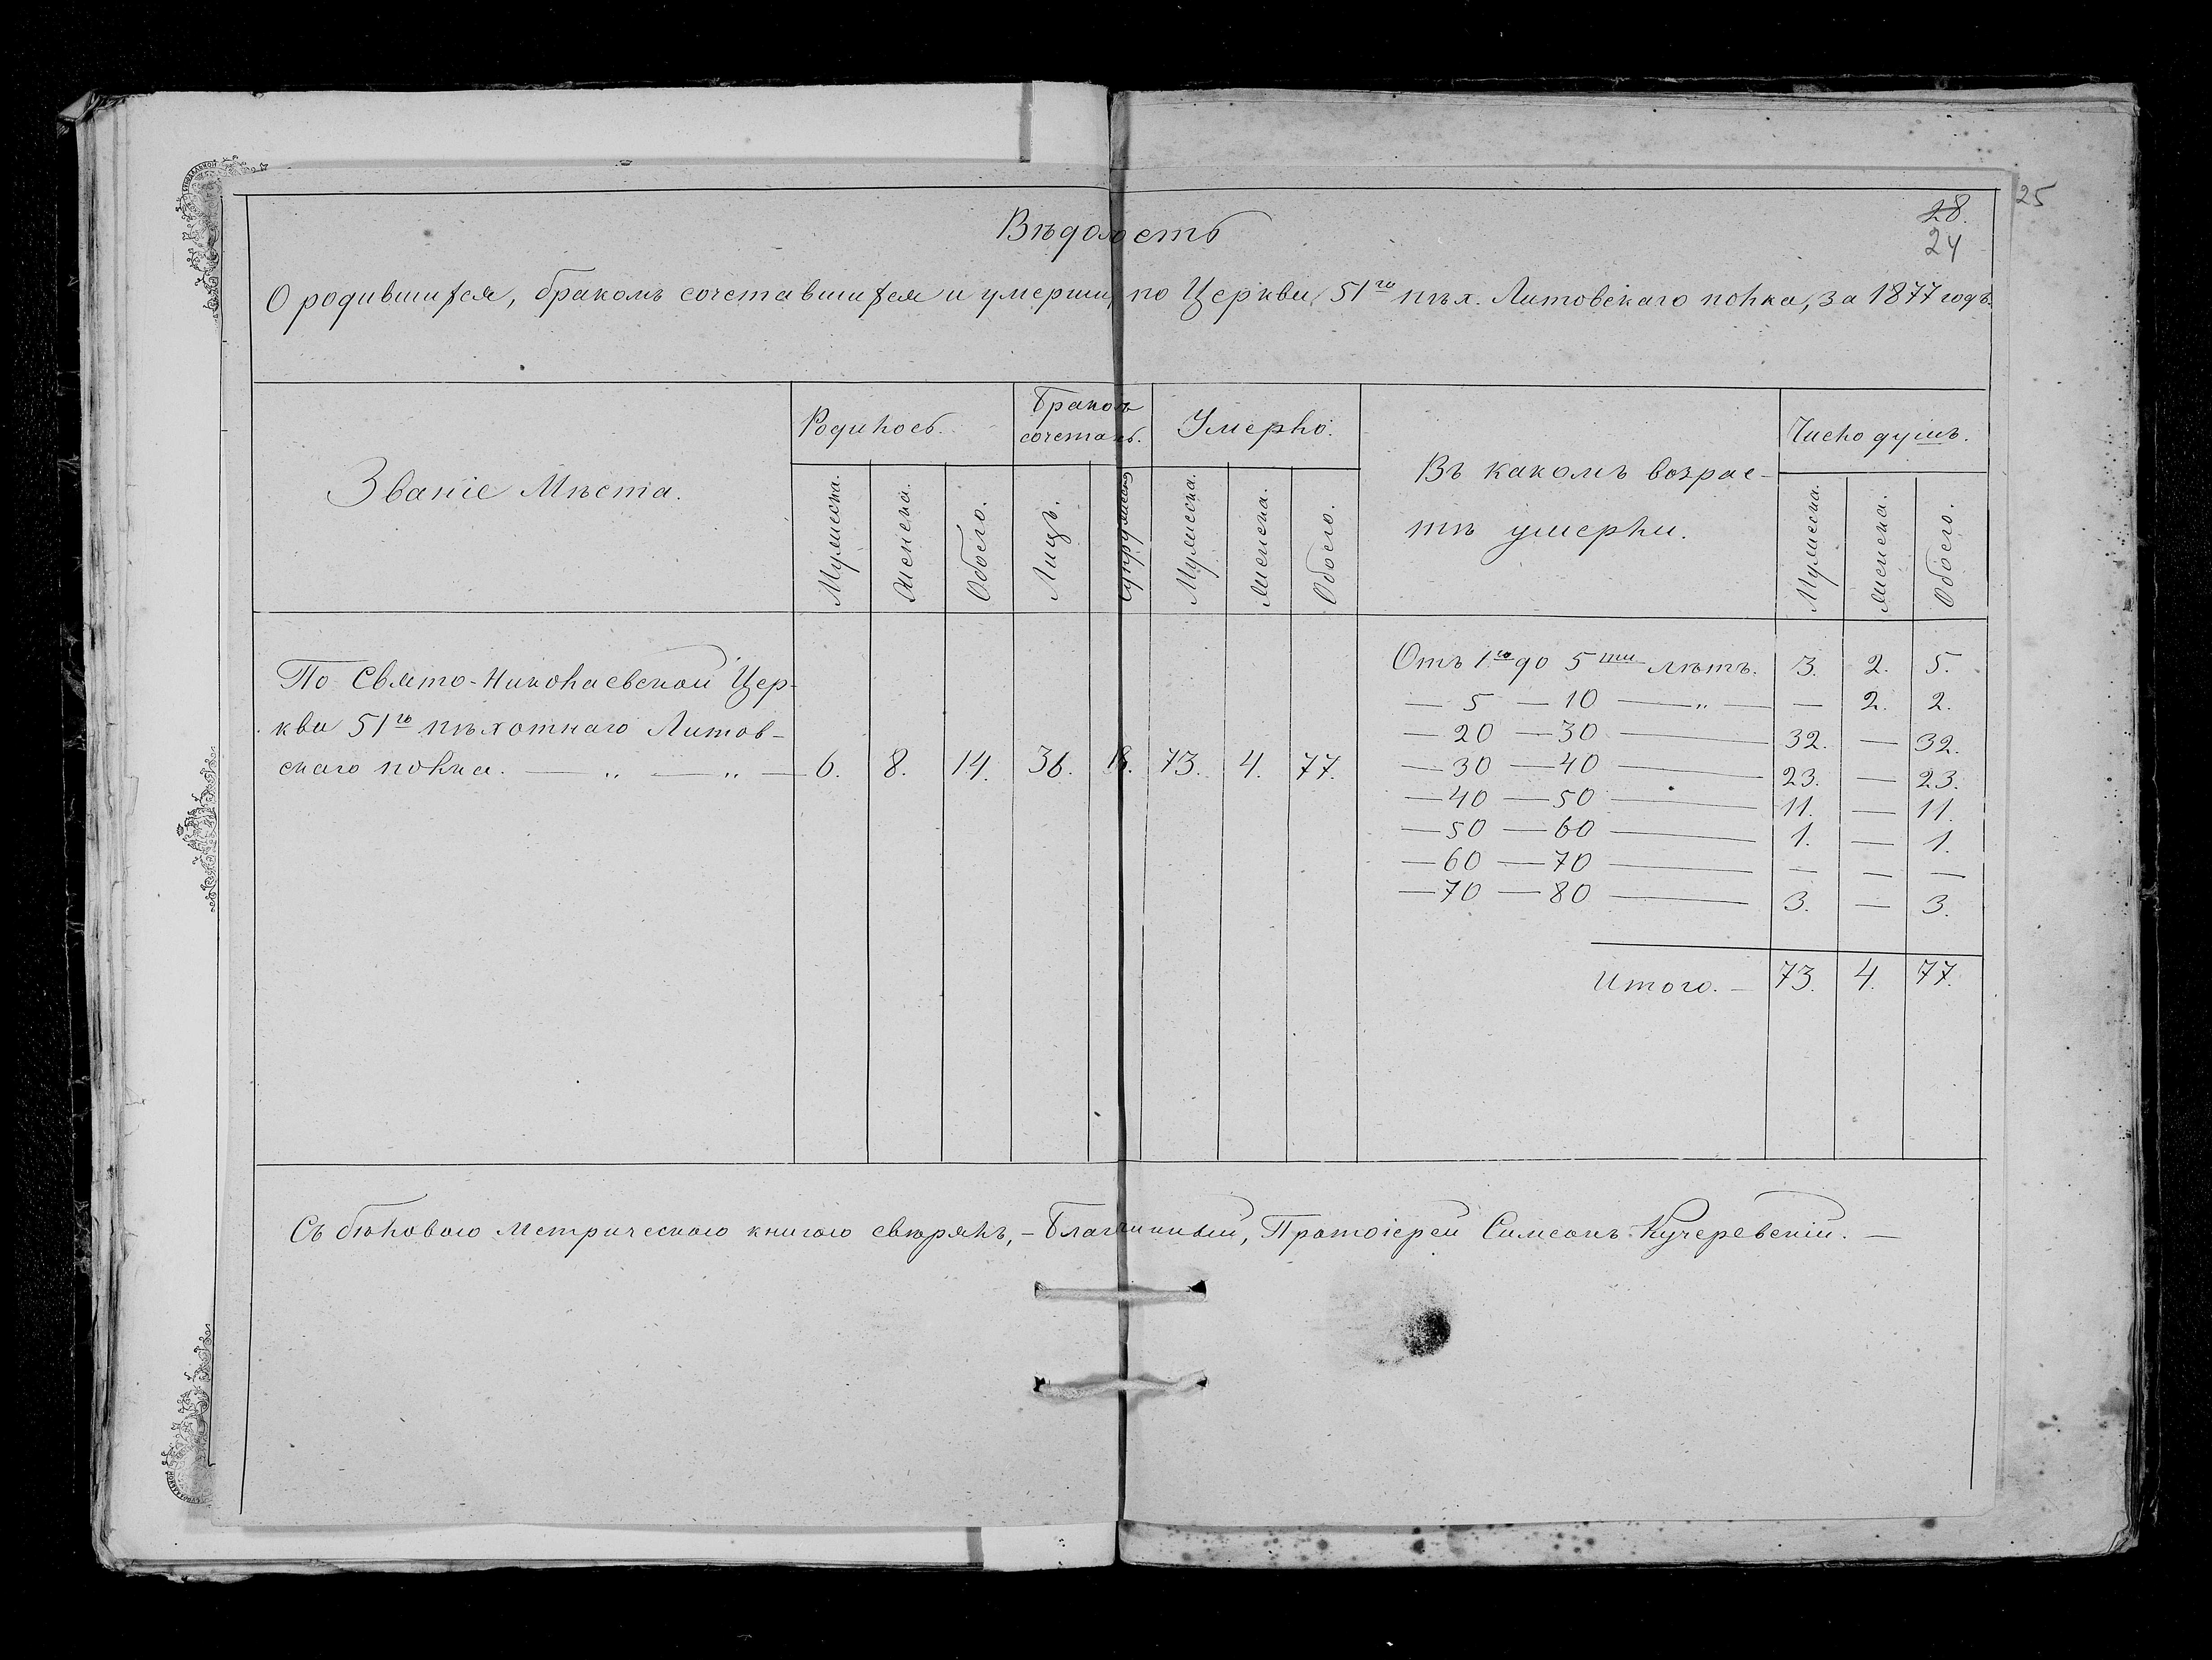 25
28.
24
Вѣдомость
О родившихся, бракомъ сочетавшихся и умершихъ по Церкви 51го пѣх. Литовскаго полка, за 1877 годъ.
Званіе Мѣста.
Родилось.
Бракомъ
сочетанъ.
Умерло.
Въ какомъ возрас-
тѣ умерли.
Число душъ.
Мужеска. Женска. Обоего. Лицъ. Супружествъ Мужеска. Женска. Обоего. Мужеска. Женска. Обоего.
По Свято-Николаевской Цер-
кви 51го пѣхотнаго Литов-
скаго полка. — „ — „ — 6. 8. 14. 36. 18. 73. 4. 77.
Отъ 1го до 5ти лѣтъ. 3. 2. 5.
— 5 — 10 — „ — — 2. 2.
— 20 — 30 — 32. — 32.
— 30 — 40 — 23. — 23.
— 40 — 50 — 11. — 11.
— 50 — 60 — 1. — 1.
— 60 — 70 — — — —
— 70 — 80 — 3. — 3.
Итого. — 73. 4. 77.
Съ бѣловою Метрическою книгою свѣрялъ, — Благочинный, Протоіерей Симеонъ Кучеревскій. —